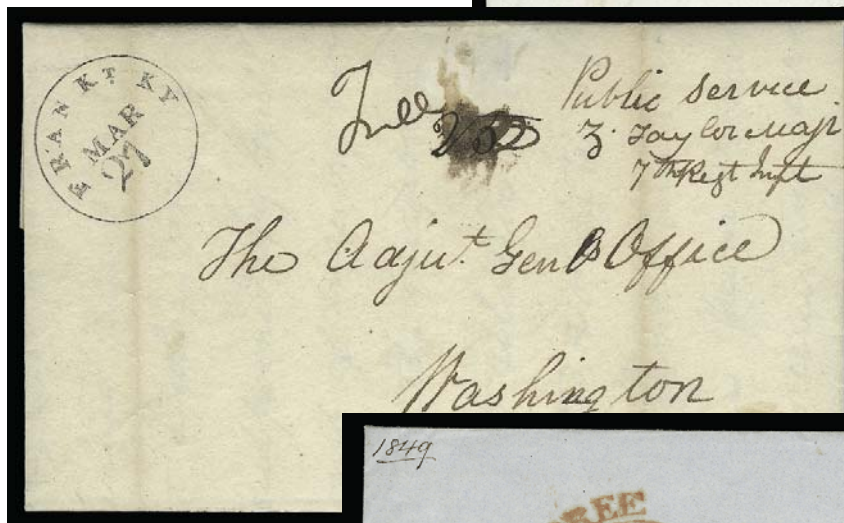 FRANKT KY
MAR
27
Free
Public Service
Z. Taylor Majr
7th Regt Inft
The Adjut. Genls Office
Washington
1849
FREE